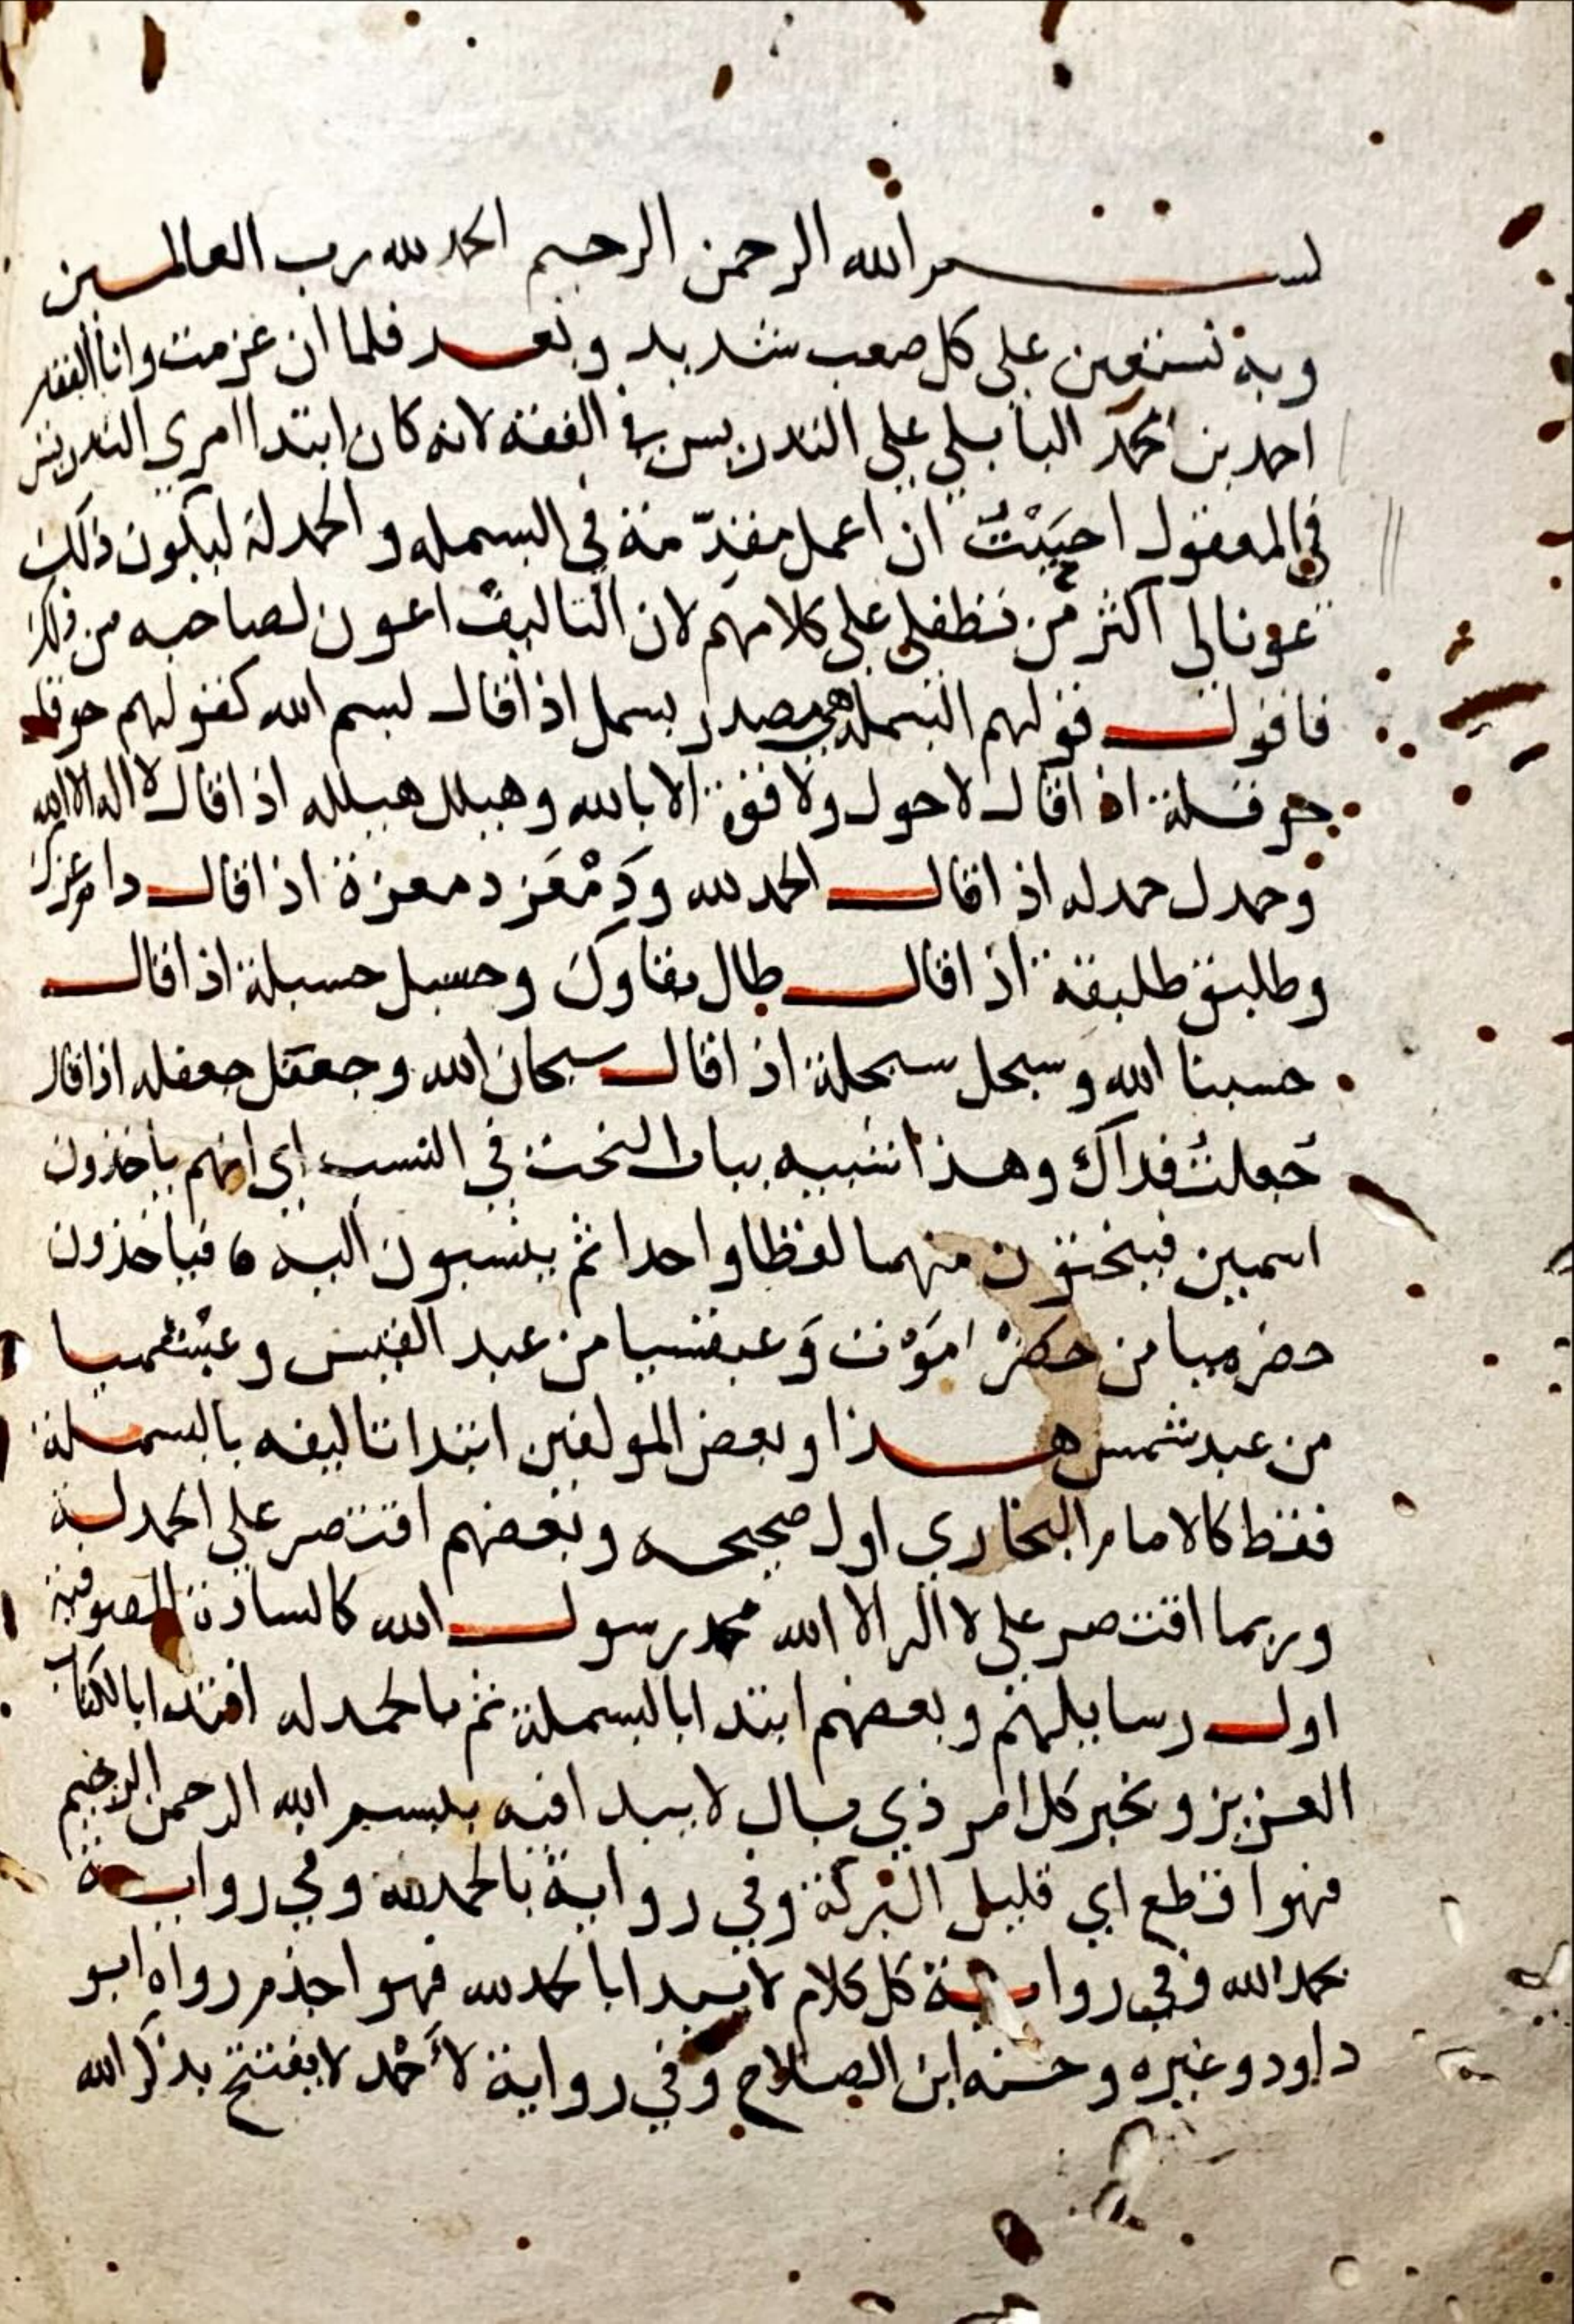 بسم الله الرحمن الرحيم الحمد لله رب العالمين
وبه نستعين على كل صعب شديد وبعد فلما ان عزمت وانا الفقير
احمد بن محمد البابلي علي التدريس في الفقه لانه كان ابتدا امري التدريس
في المعقول احببت ان اعمل مقدّمة في البسمله والحمدلة ليكون ذلك
عونا لي اكثر من تطفلي على كلامهم لان التاليف اعون لصاحبه من ذلك
فاقول قولهم البسملة هي مصدر بسمل اذا قال بسم الله كقولهم حوقل
حوقلة اذا قال لاحول ولا قوة الا بالله وهيلل هيلله اذا قال لا اله الا الله
وحمدل حمدله اذا قال الحمد لله ودَمْعَز دمعزة اذا قال دام عزك
وطلبق طلبقة اذا قال طال بقاوك وحسبل حسبلة اذا قال
حسبنا الله وسبحل سبحلة اذا قال سبحان الله وجعفل جعفله اذا قال
جُعلتُ فداك وهذا شبيه بباب النحت في النسب اي انهم ياخذون
اسمين فينحتون منهما لفظا واحدا ثم ينسبون اليه فياخذون
حضرميا من حضرْ امَوْت وَعبقسيا من عبد القيس وعبْشميا
من عبد شمس هذا وبعض المولفين ابتدا تاليفه بالبسملة
فقط كالامام البخاري اول صحيحه وبعضهم اقتصر علي الحمدلة
وربما اقتصر على لا اله الا الله محمد رسول الله كالسادة الصوفية
اول رسايلهم وبعضهم ابتدا بالبسملة ثم بالحمدله اقتدا بالكتاب
العزيز وبخبر كل امر ذي بال لا يبدا فيه ببسم الله الرحمن الرحيم
فهو اقطع اي قليل البركة وفي رواية بالحمد لله وفي رواية
بحمد الله وفي رواية كل كلام لا يبدا بالحمد لله فهو اجذم رواه ابو
داود وغيره وحسنه ابن الصلاح وفي رواية لأحْمد لا يفتتح بذكر الله